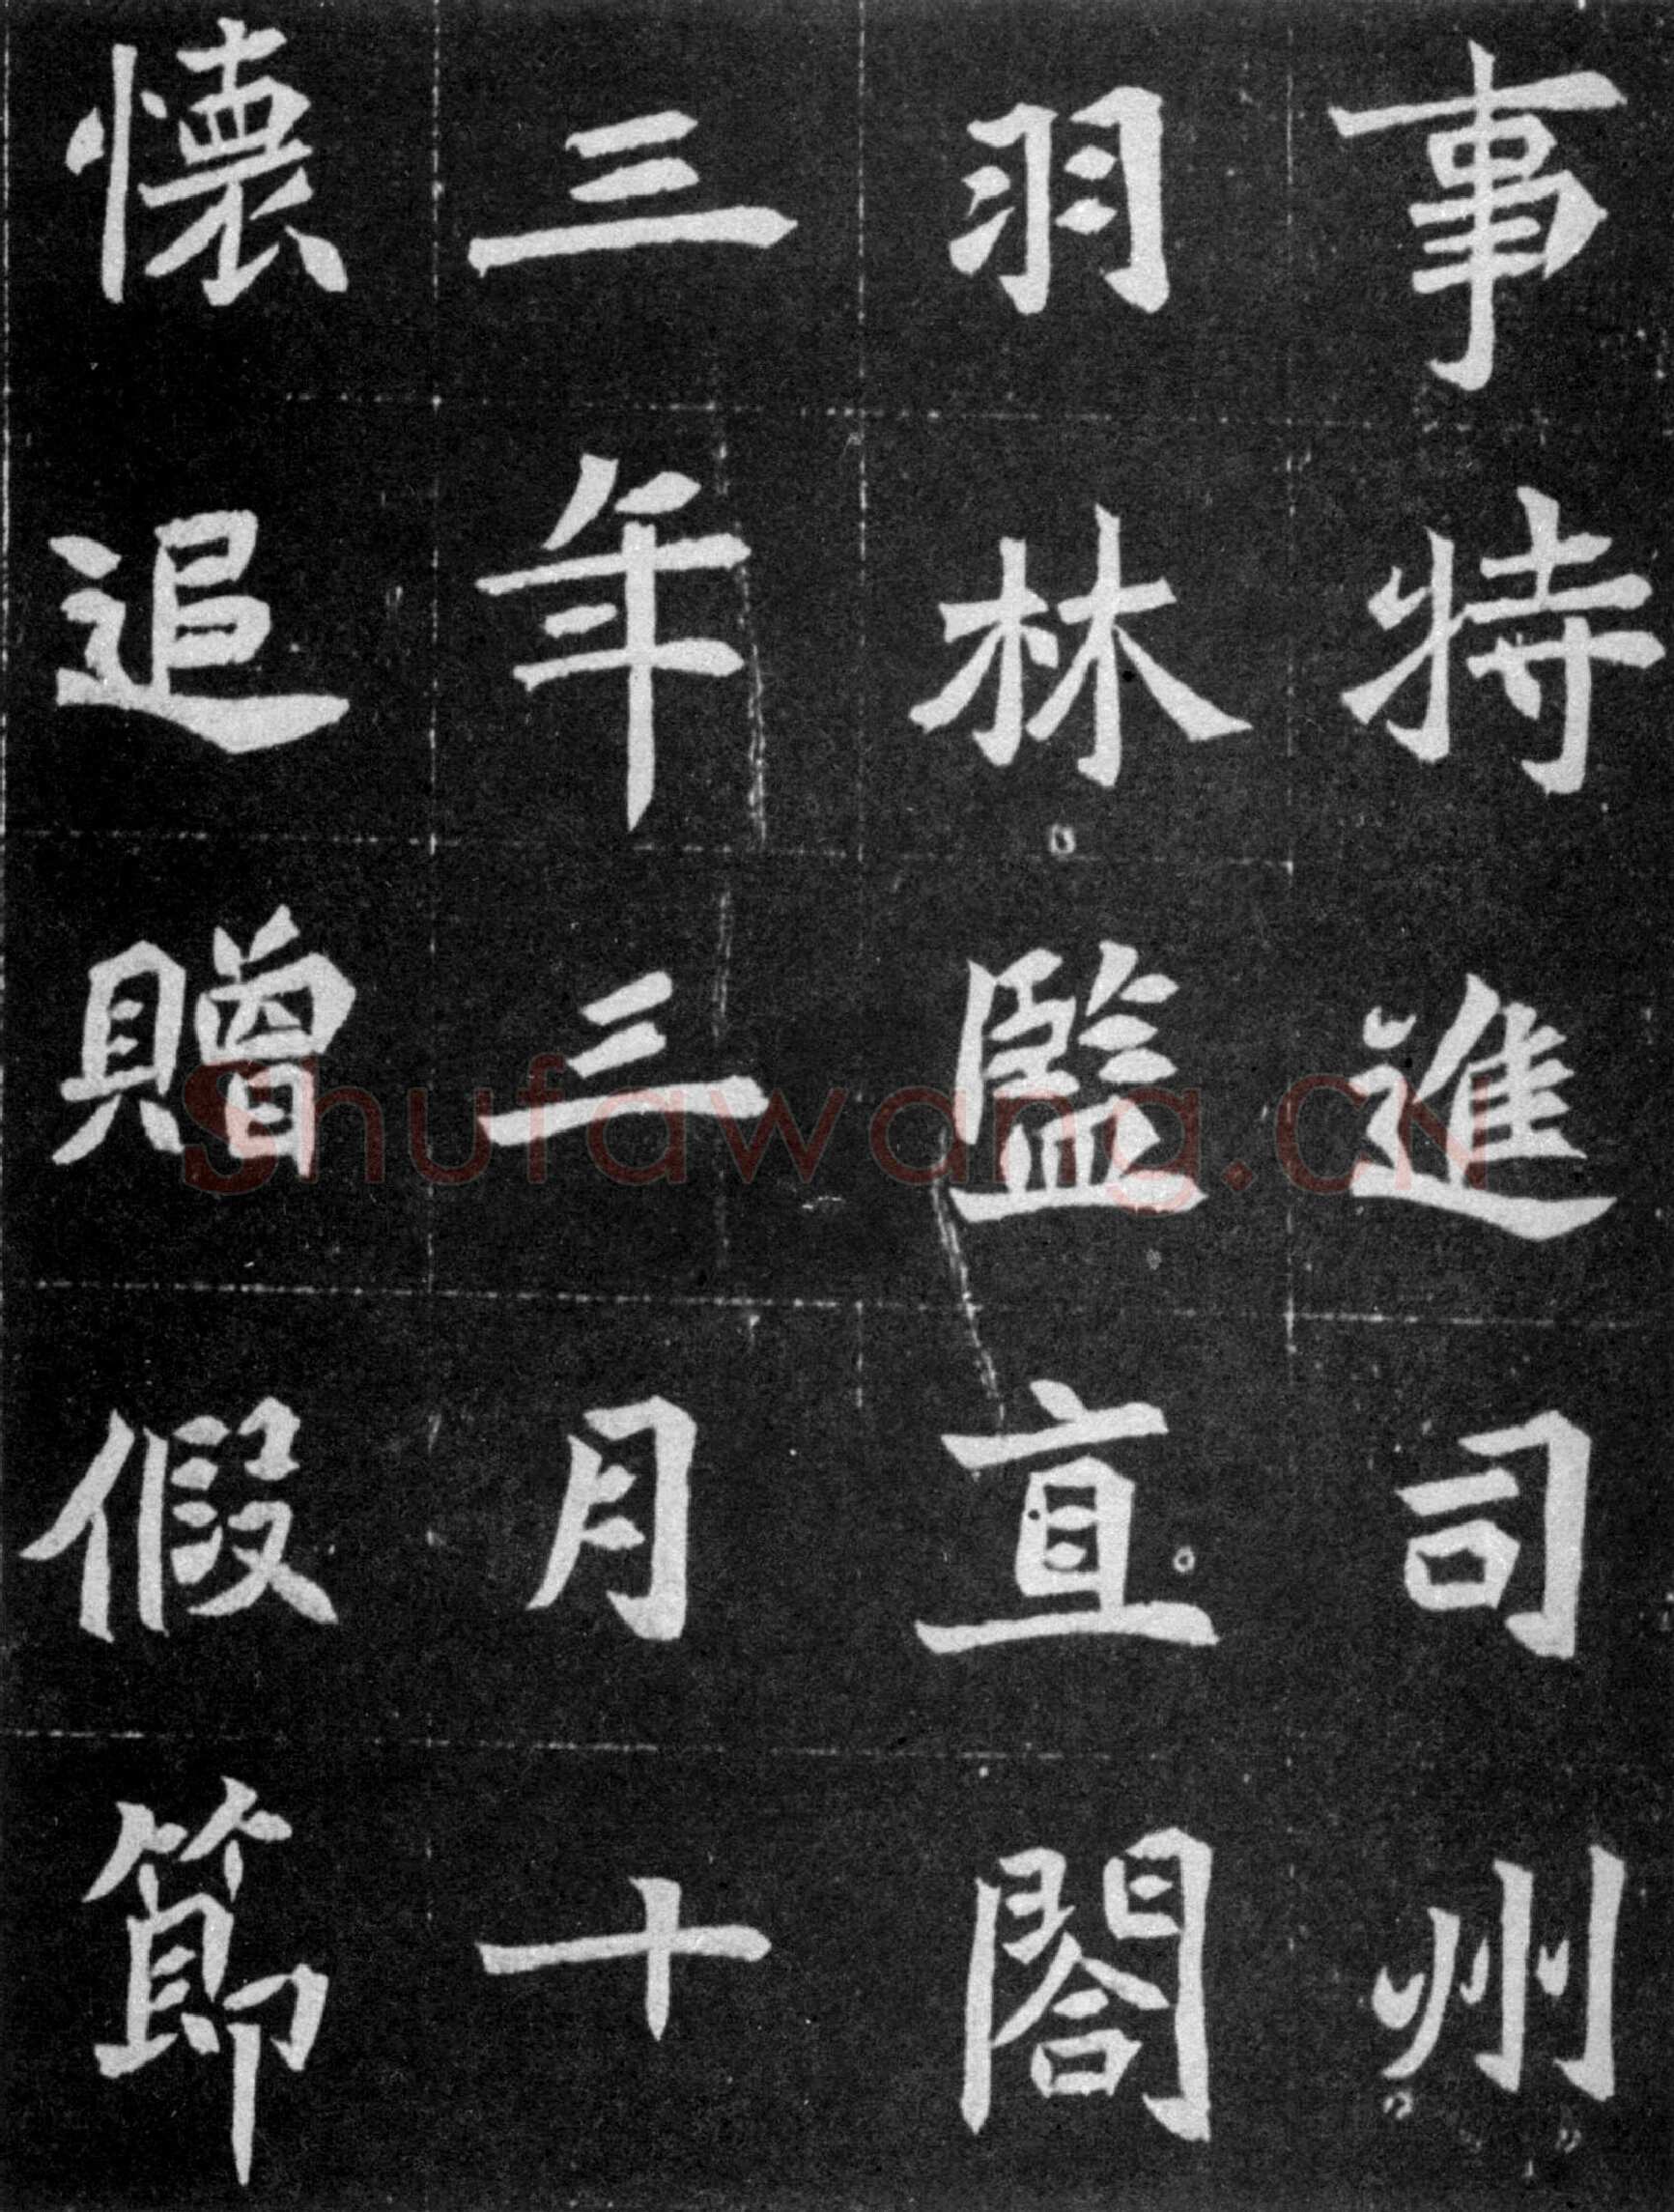 事特進司州
羽林監直閤
三年三月十
懷追贈假節
Shufawang.CN